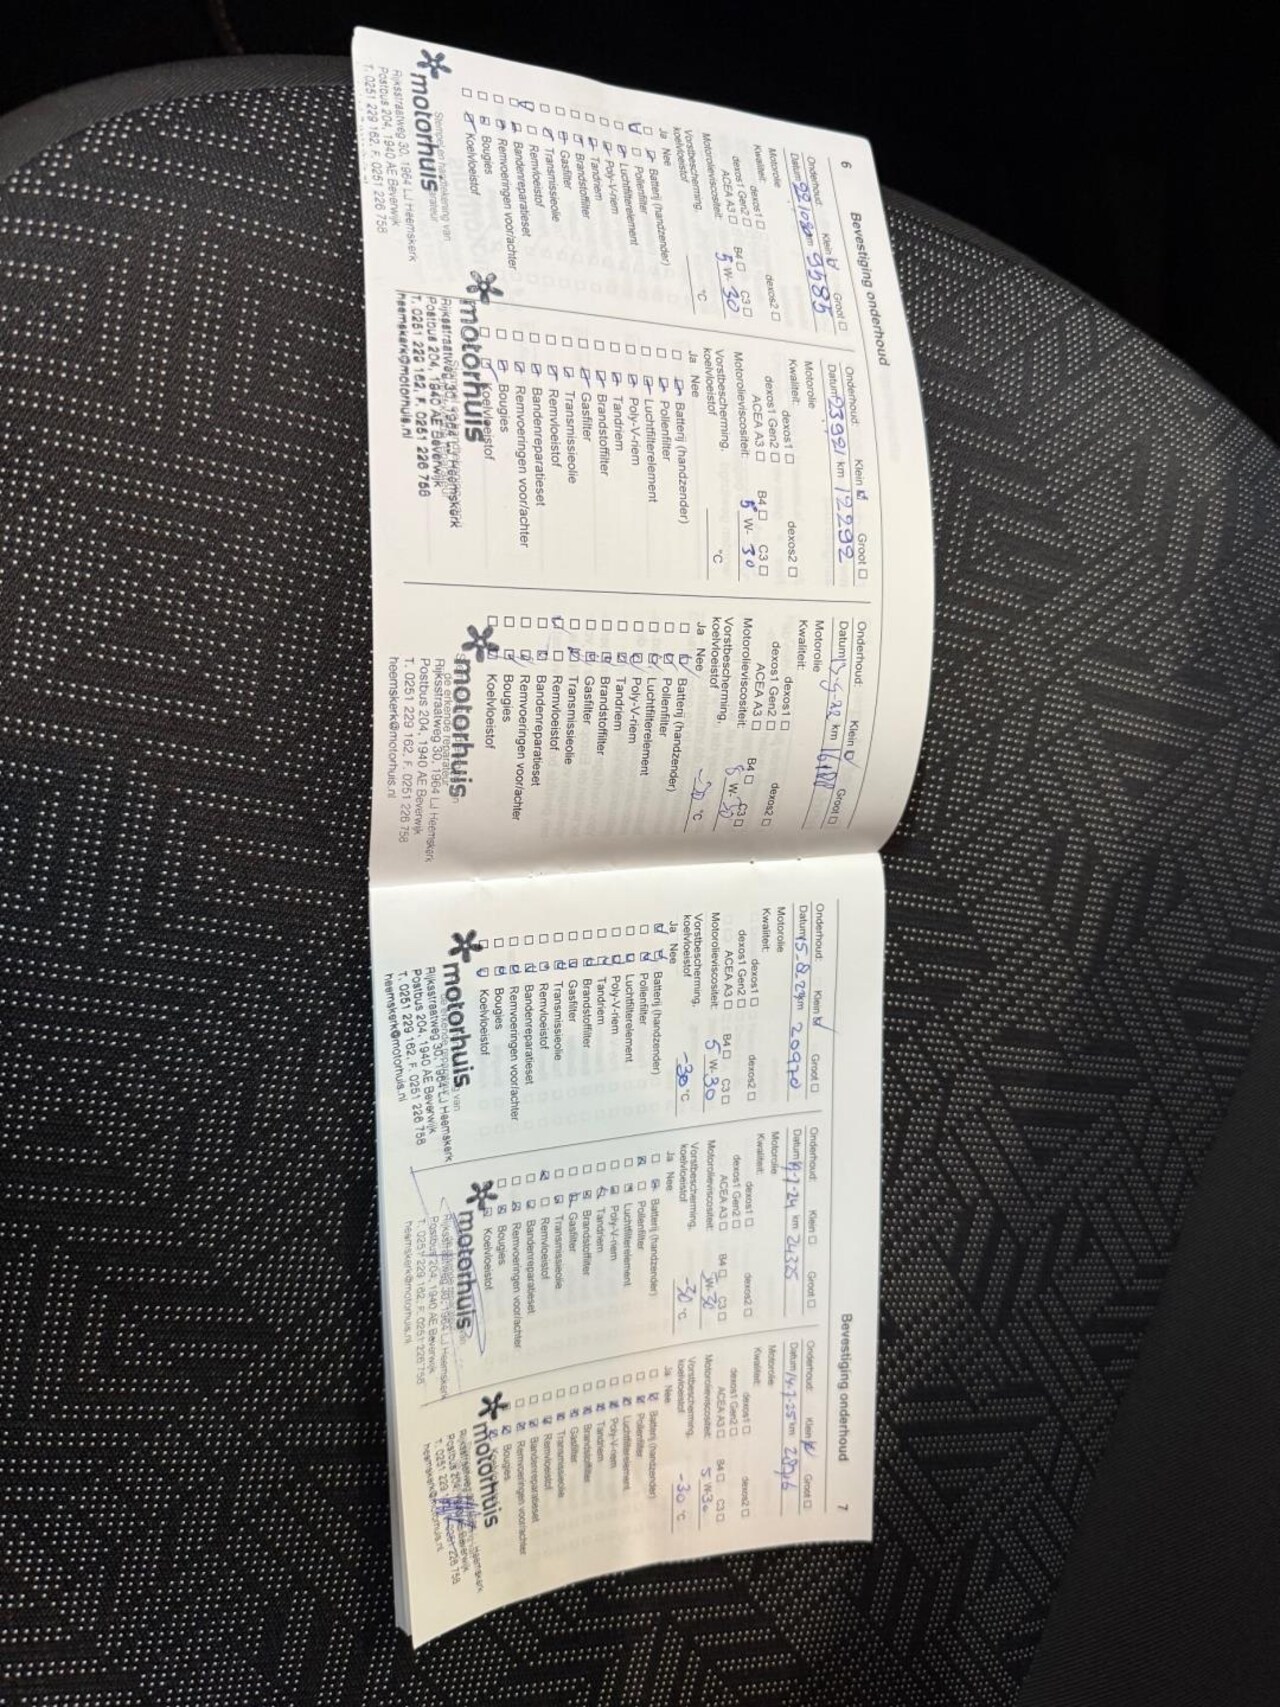 6 Bevestiging onderhoud
Onderhoud: Klein Groot
Datum km 9585
Motorolie
Kwaliteit: dexos1 dexos2
dexos1 Gen2
ACEA A3 B4 C3
Motorolieviscositeit: 5 W- 30
Vorstbescherming,
koelvloeistof °C
Ja Nee
Batterij (handzender)
Pollenfilter
Luchtfilterelement
Poly-V-riem
Tandriem
Brandstoffilter
Gasfilter
Transmissieolie
Remvloeistof
Bandenreparatieset
Remvoeringen voor/achter
Bougies
Koelvloeistof
Stempel en handtekening van
motorhuis
Rijksstraatweg 30, 1964 LJ Heemskerk
Postbus 204, 1940 AE Beverwijk
T. 0251 229 162, F. 0251 226 758
Onderhoud: Klein Groot
Datum km 12292
Motorolie
Kwaliteit: dexos1 dexos2
dexos1 Gen2
ACEA A3 B4 C3
Motorolieviscositeit: 5 W- 30
Vorstbescherming,
koelvloeistof °C
Ja Nee
Batterij (handzender)
Pollenfilter
Luchtfilterelement
Poly-V-riem
Tandriem
Brandstoffilter
Gasfilter
Transmissieolie
Remvloeistof
Bandenreparatieset
Remvoeringen voor/achter
Bougies
Koelvloeistof
motorhuis
Rijksstraatweg 30, 1964 LJ Heemskerk
Postbus 204, 1940 AE Beverwijk
T. 0251 229 162, F. 0251 226 758
heemskerk@motorhuis.nl
Onderhoud: Klein Groot
Datum km
Motorolie
Kwaliteit: dexos1 dexos2
dexos1 Gen2
ACEA A3 B4 C3
Motorolieviscositeit: 5 W- 30
Vorstbescherming,
koelvloeistof -30 °C
Ja Nee
Batterij (handzender)
Pollenfilter
Luchtfilterelement
Poly-V-riem
Tandriem
Brandstoffilter
Gasfilter
Transmissieolie
Remvloeistof
Bandenreparatieset
Remvoeringen voor/achter
Bougies
Koelvloeistof
de erkende reparateur
motorhuis
Rijksstraatweg 30, 1964 LJ Heemskerk
Postbus 204, 1940 AE Beverwijk
T. 0251 229 162, F. 0251 226 758
heemskerk@motorhuis.nl
Bevestiging onderhoud 7
Onderhoud: Klein Groot
Datum km 20970
Motorolie
Kwaliteit: dexos1 dexos2
dexos1 Gen2
ACEA A3 B4 C3
Motorolieviscositeit: 5 W- 30
Vorstbescherming,
koelvloeistof -30 °C
Ja Nee
Batterij (handzender)
Pollenfilter
Luchtfilterelement
Poly-V-riem
Tandriem
Brandstoffilter
Gasfilter
Transmissieolie
Remvloeistof
Bandenreparatieset
Remvoeringen voor/achter
Bougies
Koelvloeistof
motorhuis
Rijksstraatweg 30, 1964 LJ Heemskerk
Postbus 204, 1940 AE Beverwijk
T. 0251 229 162, F. 0251 226 758
heemskerk@motorhuis.nl
Onderhoud: Klein Groot
Datum km 24325
Motorolie
Kwaliteit: dexos1 dexos2
dexos1 Gen2
ACEA A3 B4 C3
Motorolieviscositeit: 5 W- 30
Vorstbescherming,
koelvloeistof -30 °C
Ja Nee
Batterij (handzender)
Pollenfilter
Luchtfilterelement
Poly-V-riem
Tandriem
Brandstoffilter
Gasfilter
Transmissieolie
Remvloeistof
Bandenreparatieset
Remvoeringen voor/achter
Bougies
Koelvloeistof
motorhuis
Rijksstraatweg 30, 1964 LJ Heemskerk
Postbus 204, 1940 AE Beverwijk
T. 0251 229 162, F. 0251 226 758
heemskerk@motorhuis.nl
Onderhoud: Klein Groot
Datum 14-7-25 km
Motorolie
Kwaliteit: dexos1 dexos2
dexos1 Gen2
ACEA A3 B4 C3
Motorolieviscositeit: 5 W- 30
Vorstbescherming,
koelvloeistof -30 °C
Ja Nee
Batterij (handzender)
Pollenfilter
Luchtfilterelement
Poly-V-riem
Tandriem
Brandstoffilter
Gasfilter
Transmissieolie
Remvloeistof
Bandenreparatieset
Remvoeringen voor/achter
Bougies
motorhuis
Heemskerk
heemskerk@motorhuis.nl